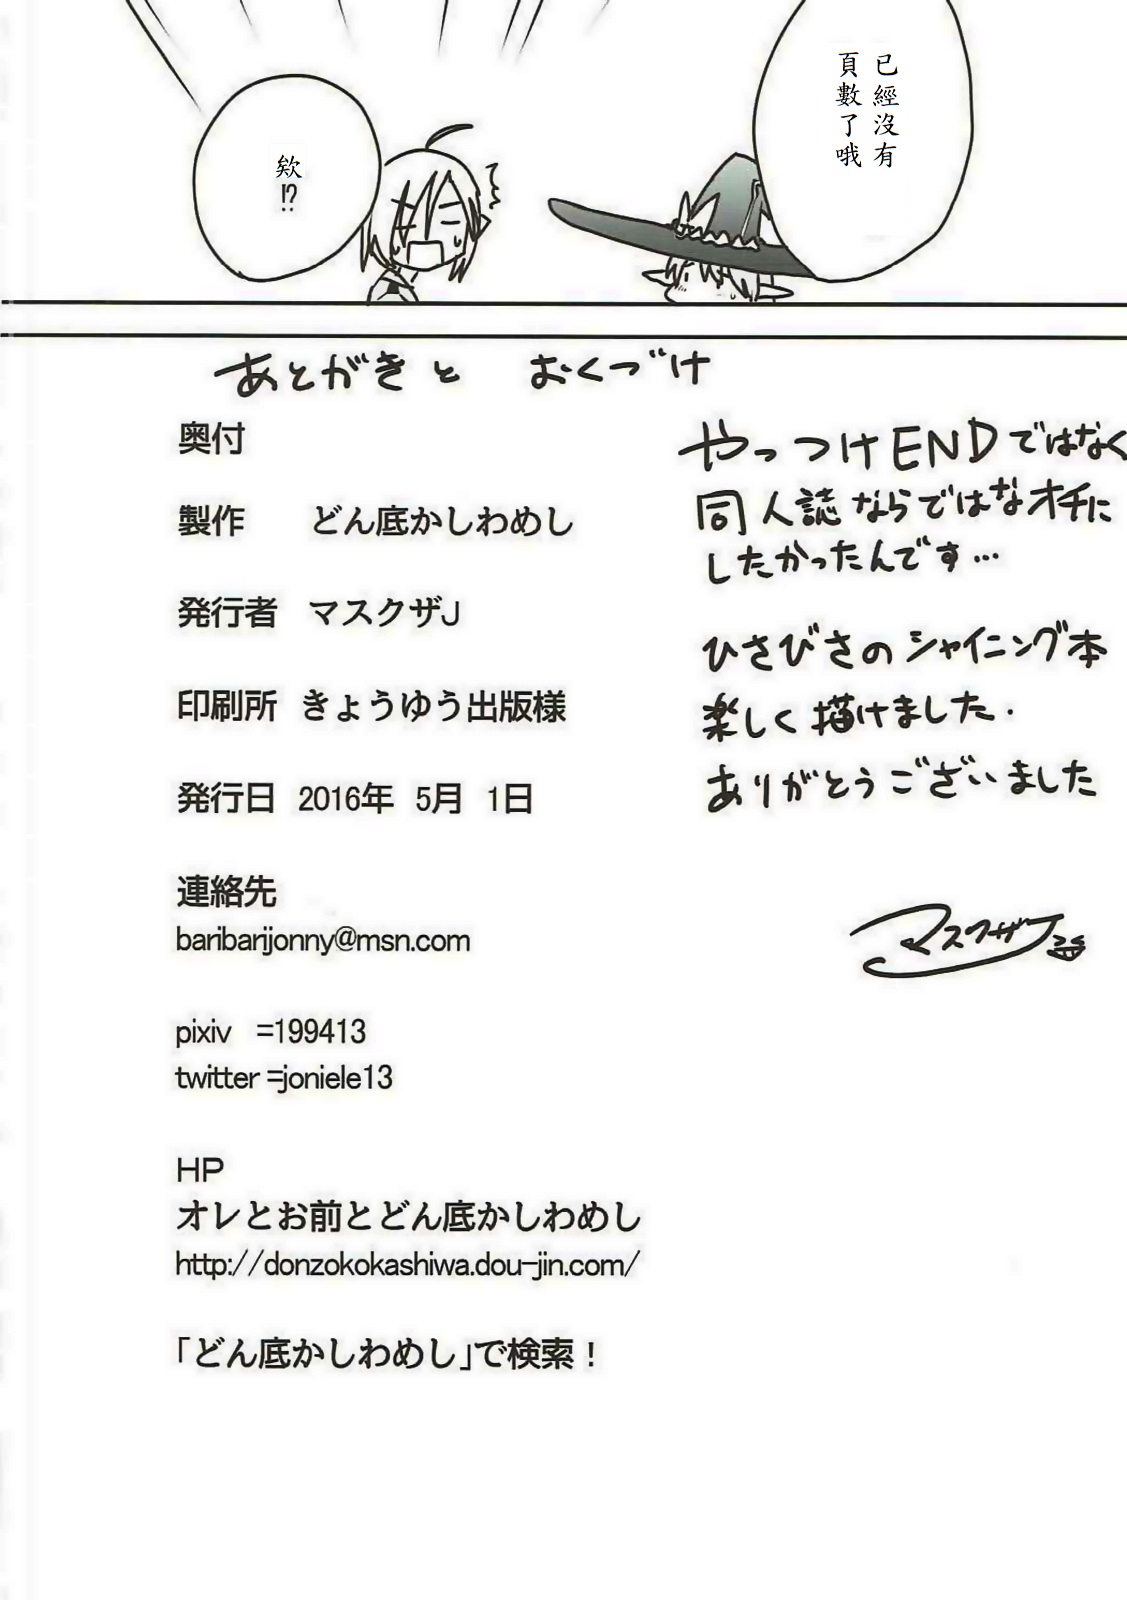 已經沒有
頁數了哦
欸
!?
あとがきと おくづけ
奥付
製作 どん底かしわめし
発行者 マスクザJ
印刷所 きょうゆう出版様
発行日 2016年 5月 1日
連絡先
baribarijonny@msn.com
pixiv =199413
twitter =joniele13
HP
オレとお前とどん底かしわめし
http://donzokokashiwa.dou-jin.com/
「どん底かしわめし」で検索！
やっつけENDではなく
同人誌ならではなオチに
したかったんです…
ひさびさのシャイニング本
楽しく描けました.
ありがとうございました
マスクザJ